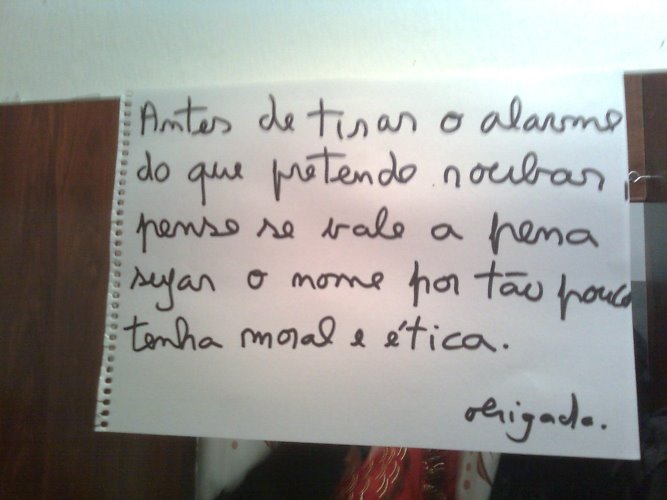 Antes de tirar o alarme
do que pretendo roubar,
pense se vale a pena
sujar o nome por tão pouco
tenha moral e ética.
obrigada.